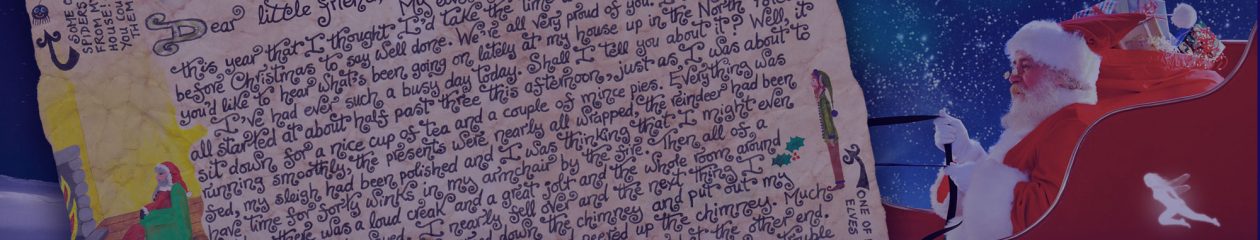 SOME
SPIDERS
FROM MY
HOUSE!
YOU
THEM
Dear little My
this year that I thought I'd take the time
before Christmas to say Well done. We're all very proud of you.
you'd like to hear what's been going on lately at my house up in the North
I've had ever such a busy day today. Shall I tell you about it? Well, it
all started at about half past three this afternoon, just as I was about to
sit down for a nice cup of tea and a couple of mince pies. Everything was
running smoothly, the presents were nearly all wrapped, the reindeer had been
fed, my sleigh had been polished and I was thinking that I might even
have time for forty winks in my armchair by the fire. Then all of a
there was a loud creak and a great jolt and the whole room around
I nearly fell over and the next thing I
down the chimney and put out my
peered up the chimney. Much
at the other end.
trouble
ONE OF
ELVES